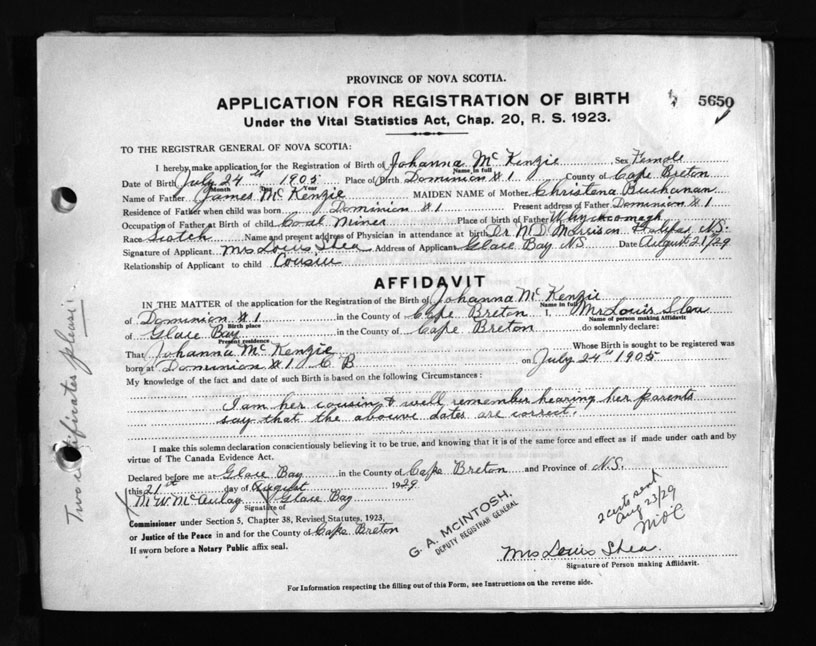 PROVINCE OF NOVA SCOTIA.
5650
APPLICATION FOR REGISTRATION OF BIRTH
Under the Vital Statistics Act, Chap. 20, R. S. 1923.
TO THE REGISTRAR GENERAL OF NOVA SCOTIA:
I hereby make application for the Registration of Birth of Johanna McKenzie Sex Female
Name in full
Date of Birth July 24th 1905 Place of Birth Dominion #1 County of Cape Breton
Month Year
Name of Father James McKenzie MAIDEN NAME of Mother Christena Buchanan
Residence of Father when child was born Dominion #1 Present address of Father Dominion #1
Occupation of Father at Birth of child Coal Miner Place of birth of Father Whycocomagh
Race Scotch Name and present address of Physician in attendance at birth Dr M D Morrison Halifax N.S.
Signature of Applicant Mrs Louis Shea Address of Applicant Glace Bay N.S. Date August 21/29
Relationship of Applicant to child Cousin
AFFIDAVIT
IN THE MATTER of the application for the Registration of the Birth of Johanna McKenzie
Name in full
of Dominion #1 in the County of Cape Breton I, Mrs Louis Shea
Birth place Name of person making Affidavit
of Glace Bay in the County of Cape Breton do solemnly declare:
Present residence
That Johanna McKenzie Whose Birth is sought to be registered was
born at Dominion #1 C B on July 24th 1905
My knowledge of the fact and date of such Birth is based on the following Circumstances:
I am her cousin & well remember hearing her parents
say that the abouve dates are correct.
I make this solemn declaration conscientiously believing it to be true, and knowing that it is of the same force and effect as if made under oath and by
virtue of The Canada Evidence Act.
Declared before me at Glace Bay in the County of Cape Breton and Province of N.S.
this 21st day of August 1929
X M. W. McAulay X Glace Bay
Signature of
Commissioner under Section 5, Chapter 38, Revised Statutes, 1923,
or Justice of the Peace in and for the County of Cape Breton
If sworn before a Notary Public affix seal.
G. A. MCINTOSH,
DEPUTY REGISTRAR GENERAL
2 certs sent
Aug 23/29
Mrs Louis Shea
Signature of Person making Affidavit.
For Information respecting the filling out of this Form, see Instructions on the reverse side.
Two certificates please